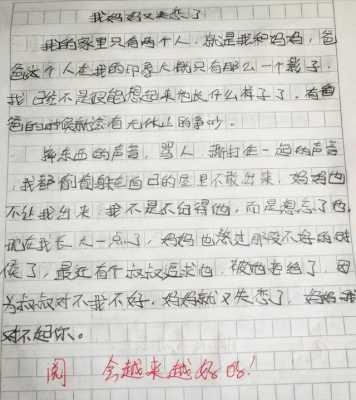 我妈妈又失恋了
我的家里只有两个人，就是我和妈妈，爸
爸这个人在我的印象大概只有那么一个影子，
我已经不是很能想起来他长什么样子了，有爸
爸的时候就会有无休止的争吵。
摔东西的声音，骂人，撕打在一起的声音
，我都偷偷躲在自己的屋里不敢出来，妈妈也
不让我出来，我不是不记得他，而是想忘了他。
现在我长大一点了，妈妈也熬过那段不好的时
候了，最近有个叔叔追求她，被她拒绝了，因
为叔叔对不我不好，妈妈就又失恋了，妈妈我
对不起你。
阅 会越来越好的！